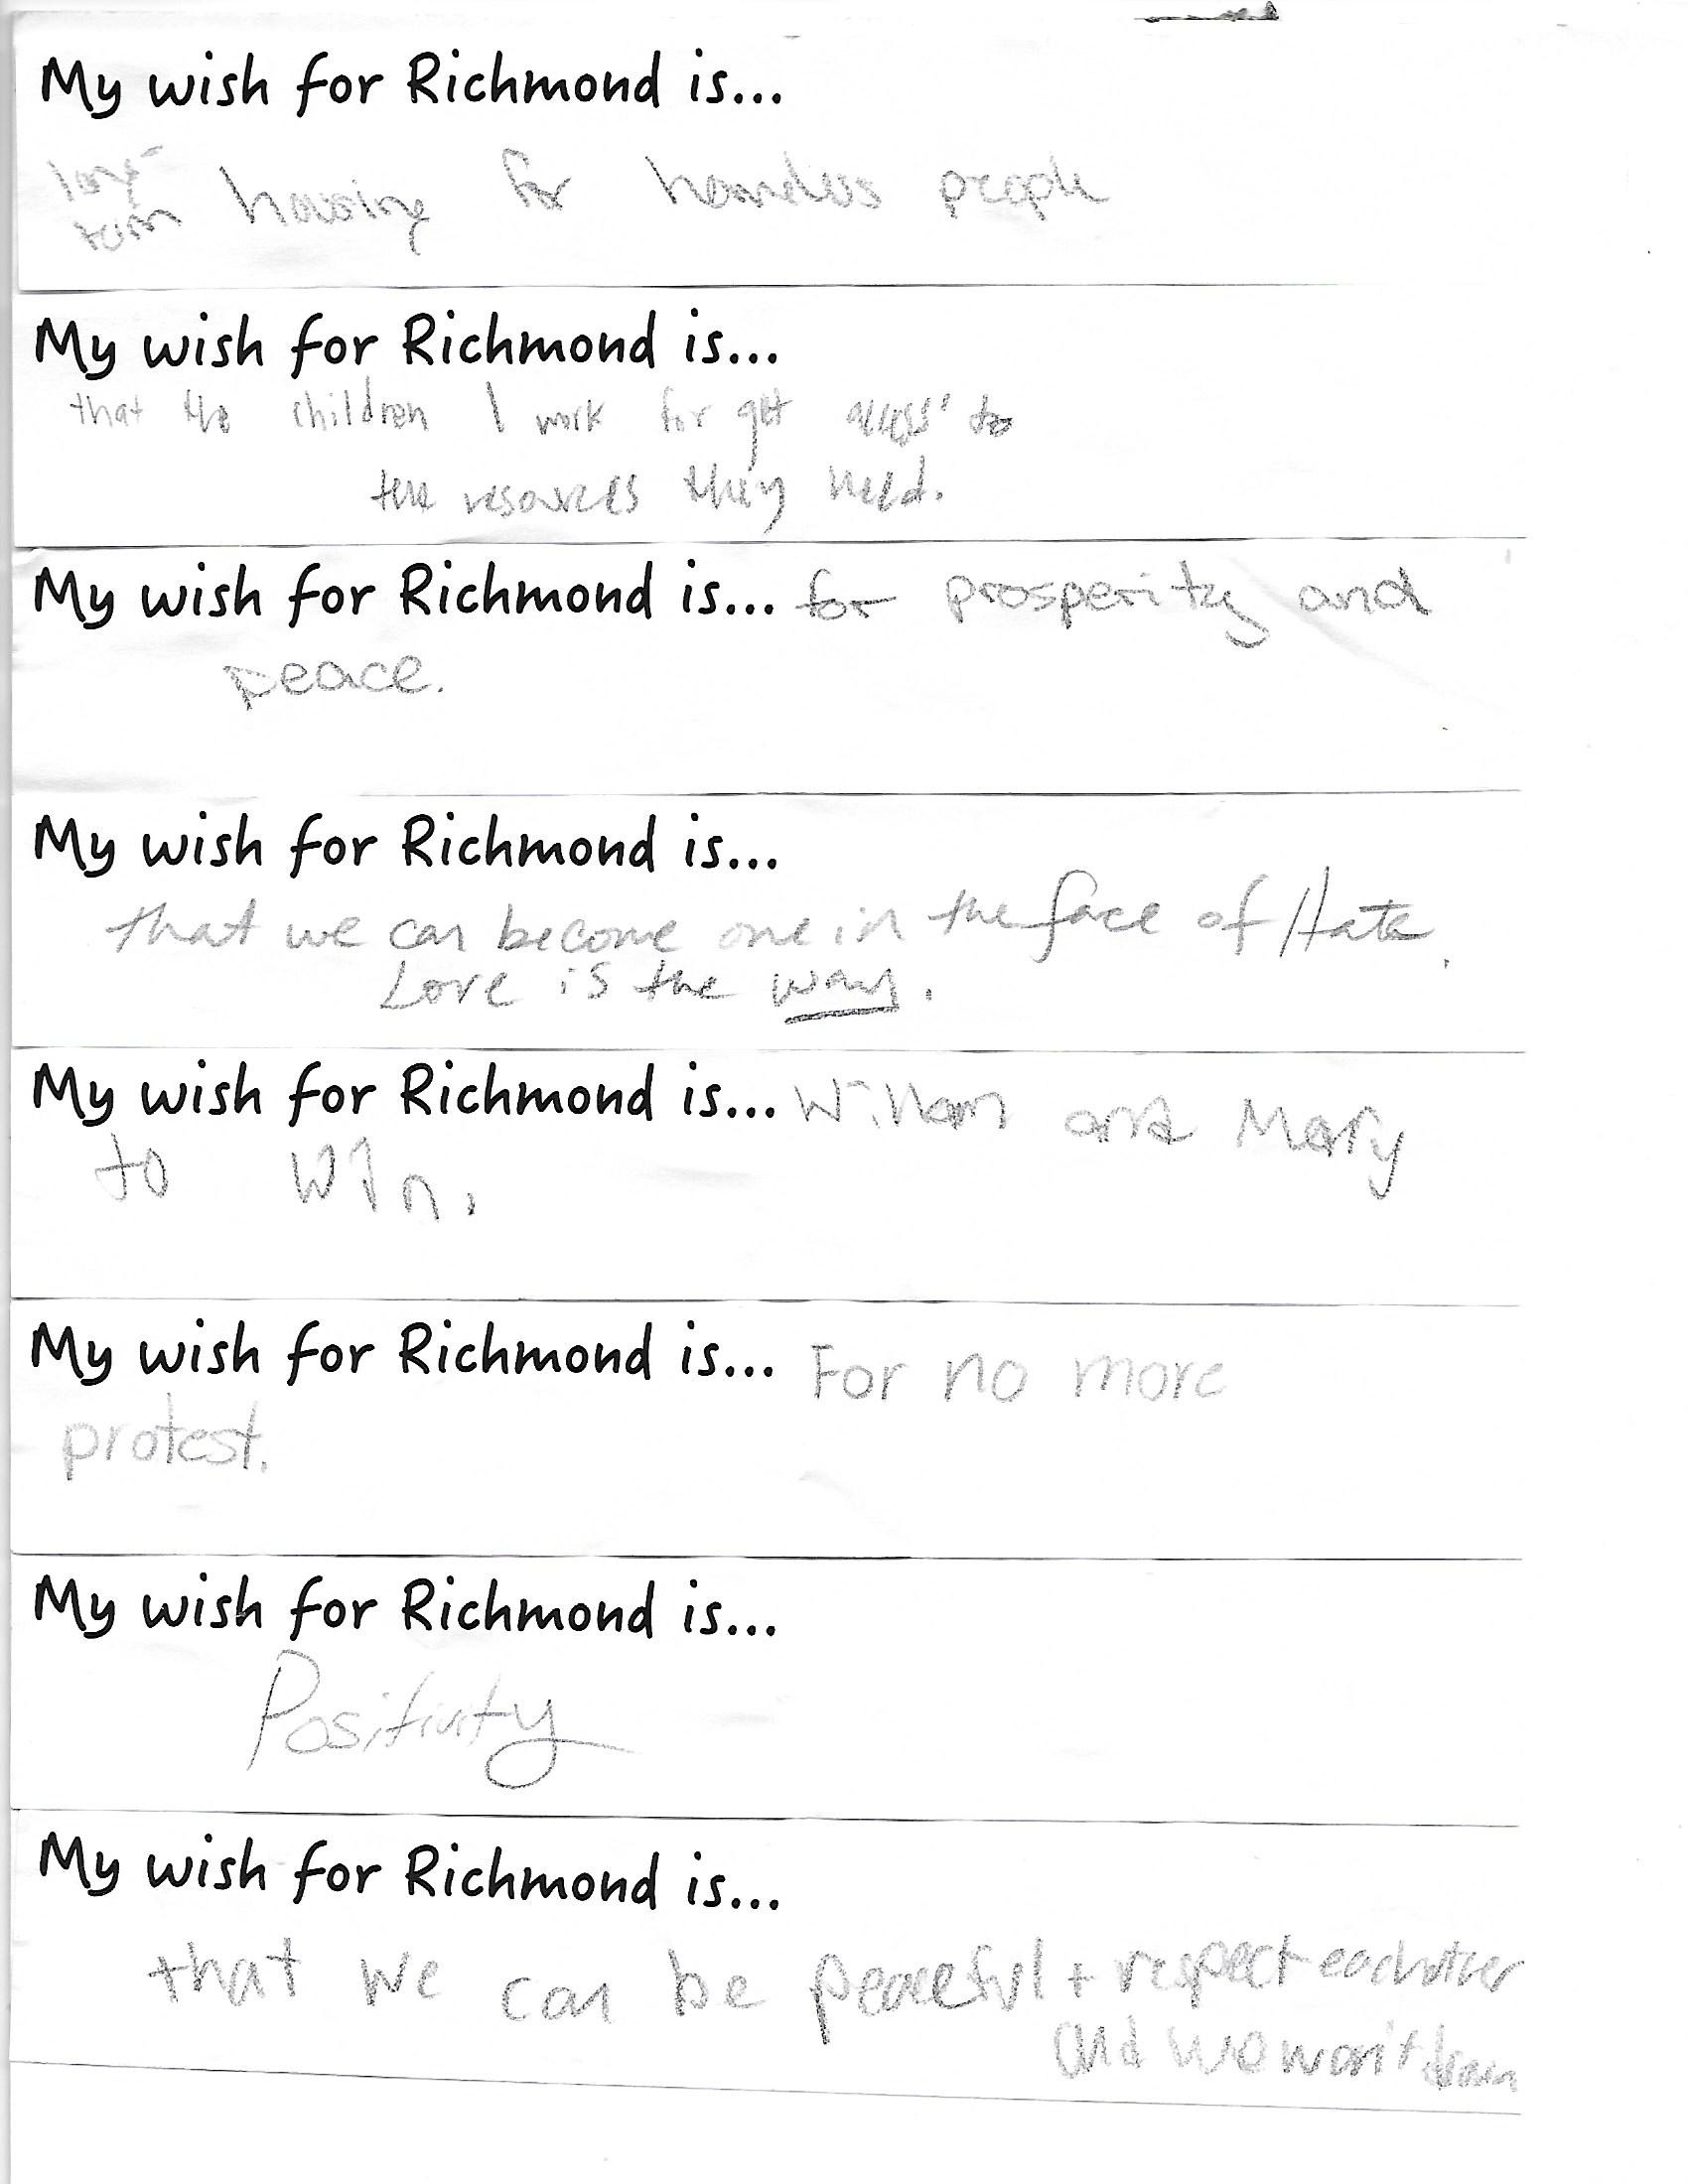 My wish for Richmond is...
long-
term housing for homeless people
My wish for Richmond is...
that the children I work for get access to
the resources they need.
My wish for Richmond is... for prosperity and
peace.
My wish for Richmond is...
that we can become one in the face of Hate.
Love is the way.
My wish for Richmond is... William and Mary
to win.
My wish for Richmond is... For no more
protest.
My wish for Richmond is...
Positivity
My wish for Richmond is...
that we can be peaceful + respect eachother
and we won't